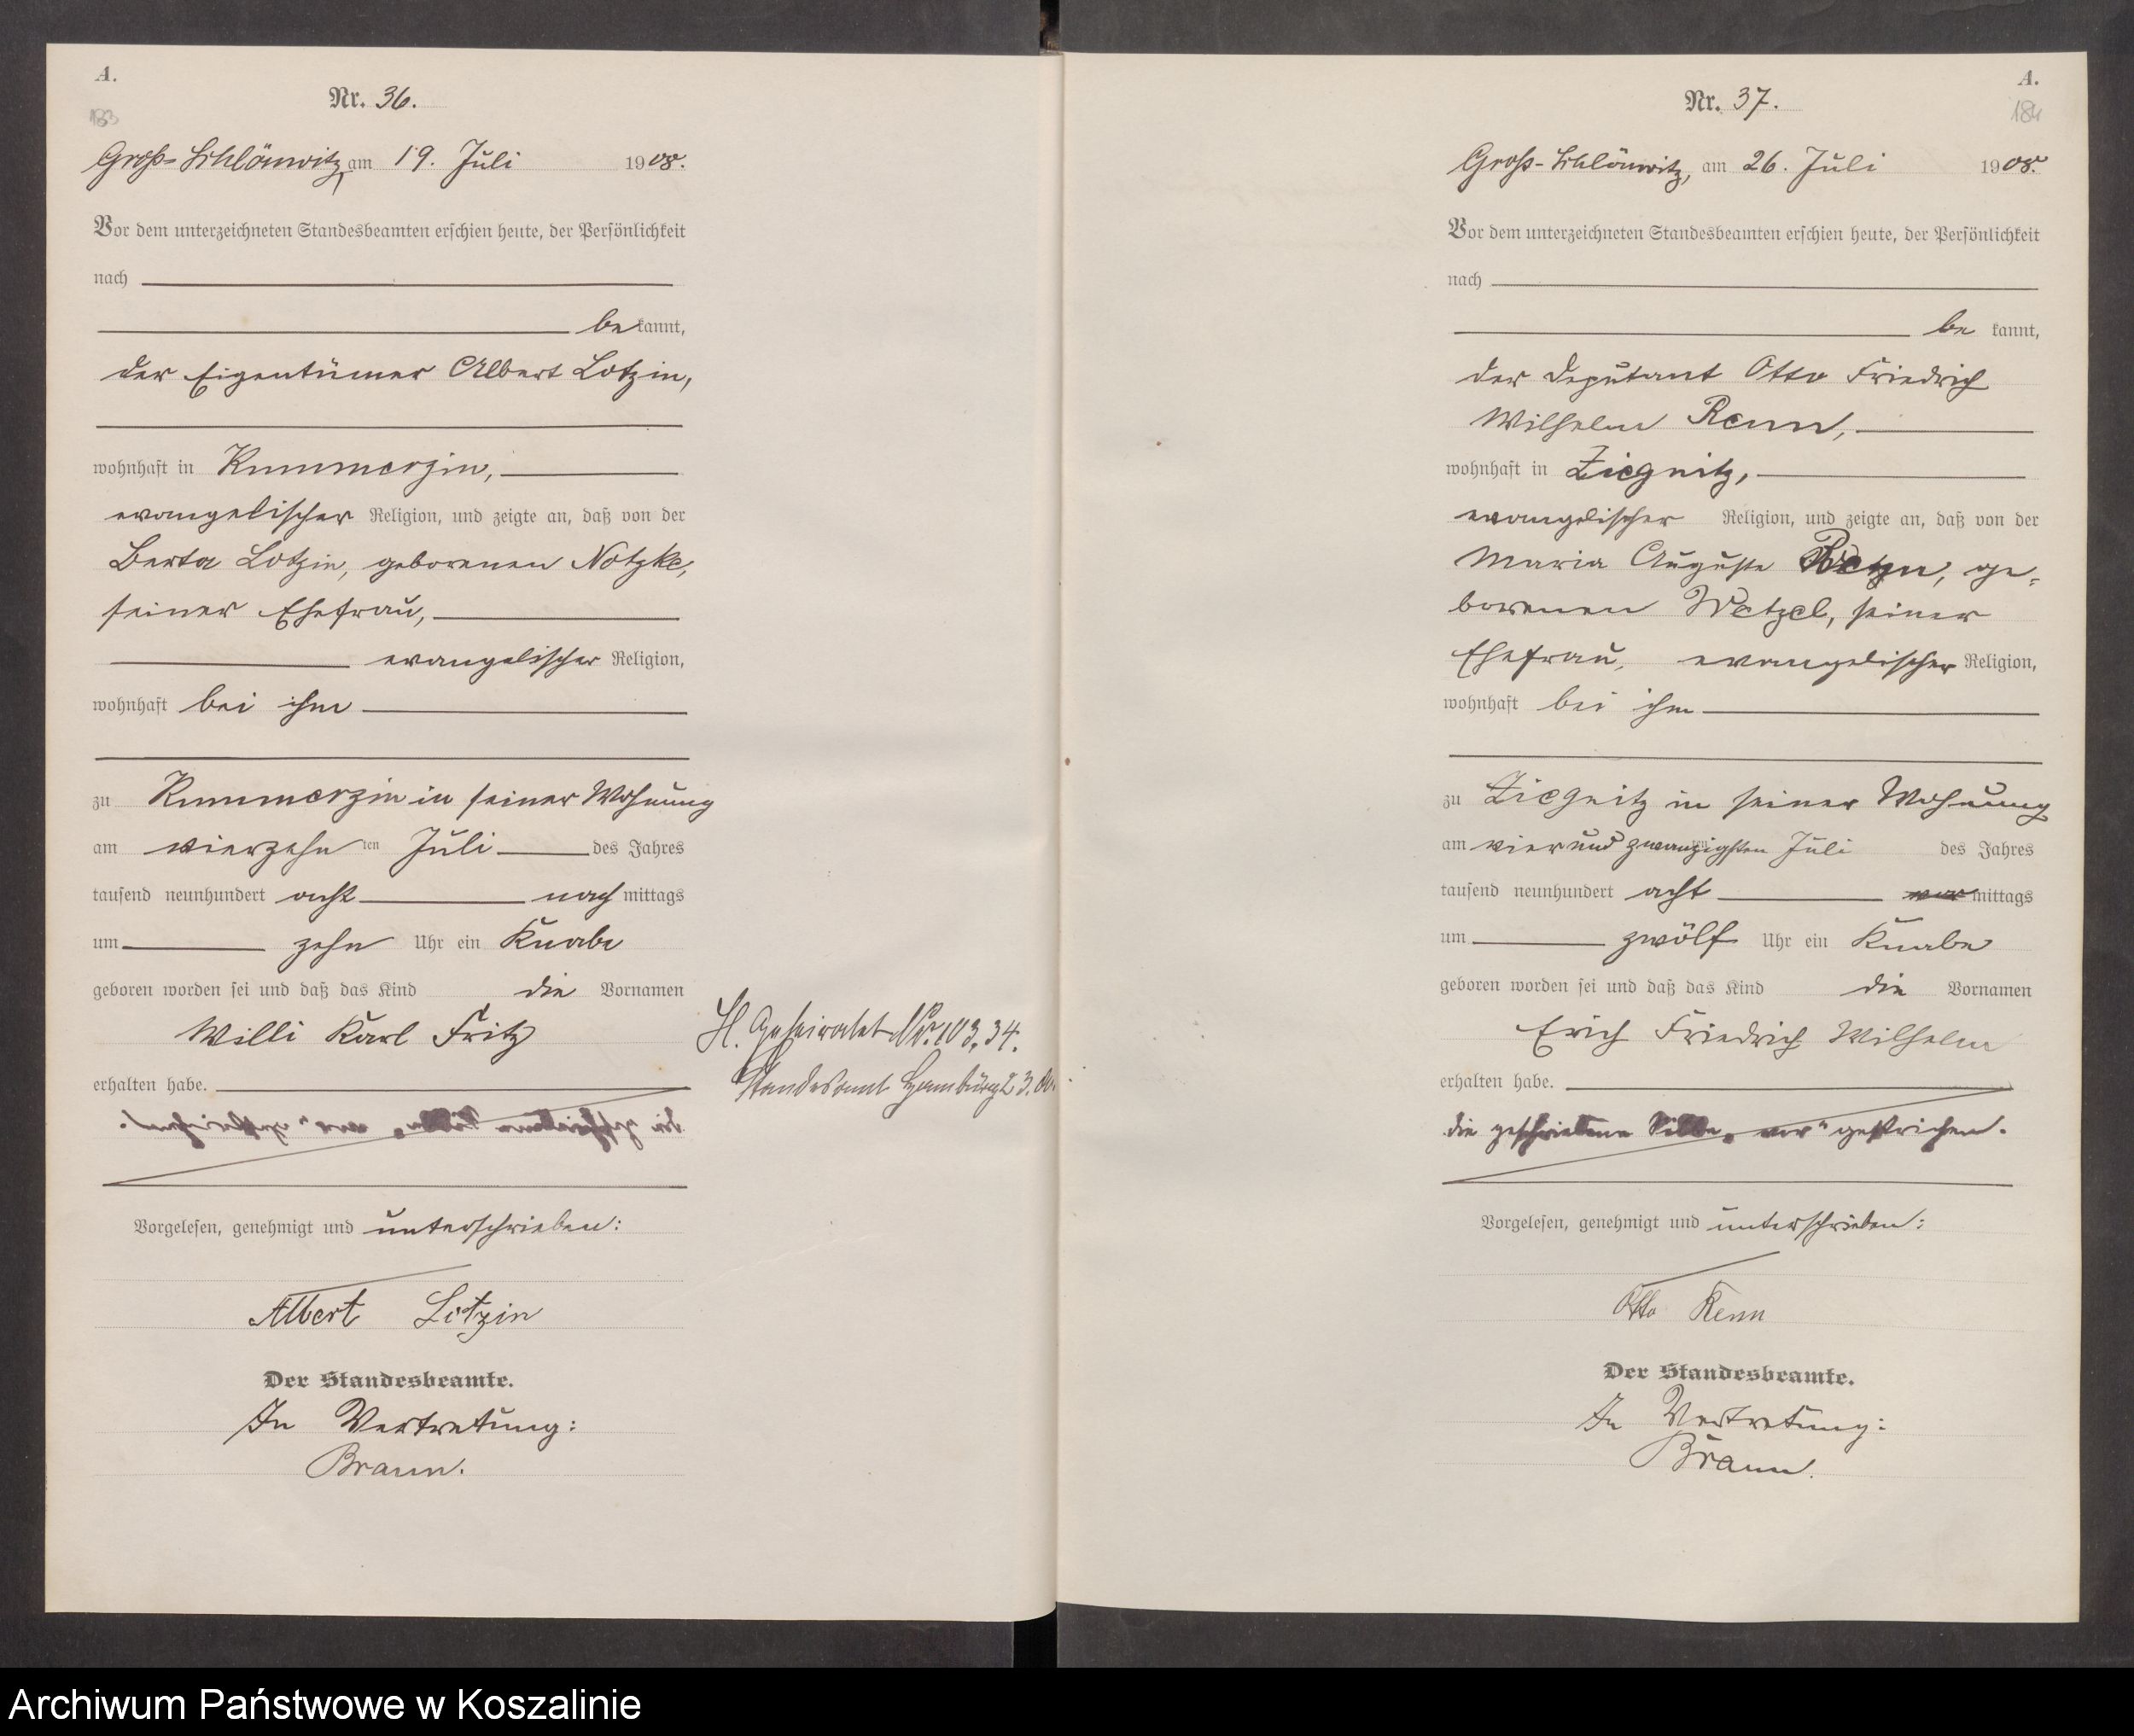 A.
183
Nr. 36.
Groß-Schlönwitz, am 19. Juli 1908.
Vor dem unterzeichneten Standesbeamten erschien heute, der Persönlichkeit
nach
bekannt,
der Eigentümer Albert Lotzin,
wohnhaft in Kummerzin,
evangelischer Religion, und zeigte an, daß von der
Berta Lotzin, geborenen Notzke,
seiner Ehefrau,
evangelischer Religion,
wohnhaft bei ihm
zu Kummerzin in seiner Wohnung
am vierzehn ten Juli des Jahres
tausend neunhundert acht nachmittags
um zehn Uhr ein Knabe
geboren worden sei und daß das Kind die Vornamen
Willi Karl Fritz
erhalten habe.
Vorgelesen, genehmigt und unterschrieben:
Albert Lotzin
Der Standesbeamte.
In Vertretung:
Braun.
H. Geheiratet Nr. 103, 34.
Standesamt Hamburg 23.
A.
184
Nr. 37.
Groß-Schlönwitz, am 26. Juli 1908.
Vor dem unterzeichneten Standesbeamten erschien heute, der Persönlichkeit
nach
bekannt,
der Deputant Otto Friedrich
Wilhelm Renn,
wohnhaft in Ziegnitz,
evangelischer Religion, und zeigte an, daß von der
Maria Auguste Renn, ge-
borenen Wetzel, seiner
Ehefrau, evangelischer Religion,
wohnhaft bei ihm
zu Ziegnitz in seiner Wohnung
am vierundzwanzigsten Juli des Jahres
tausend neunhundert acht vormittags
um zwölf Uhr ein Knabe
geboren worden sei und daß das Kind die Vornamen
Erich Friedrich Wilhelm
erhalten habe.
die geschriebene Silbe „vor" gestrichen.
Vorgelesen, genehmigt und unterschrieben:
Otto Renn
Der Standesbeamte.
In Vertretung:
Braun.
Archiwum Państwowe w Koszalinie